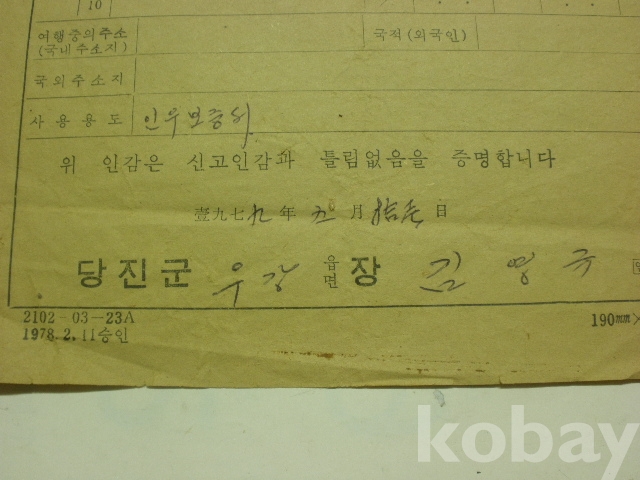 10
여행중의주소
(국내주소지)
국적(외국인)
국외주소지
사용용도 인우보증서
위 인감은 신고인감과 틀림없음을 증명합니다
壹九七九年 五月 拾壱日
당진군 우강 읍면장 김영
2102-03-23A
1978.2.11승인
190mm×
kobay